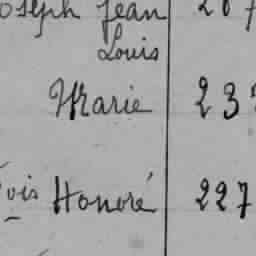 Joseph Jean 207
Louis
Marie 23
ois Honoré 227